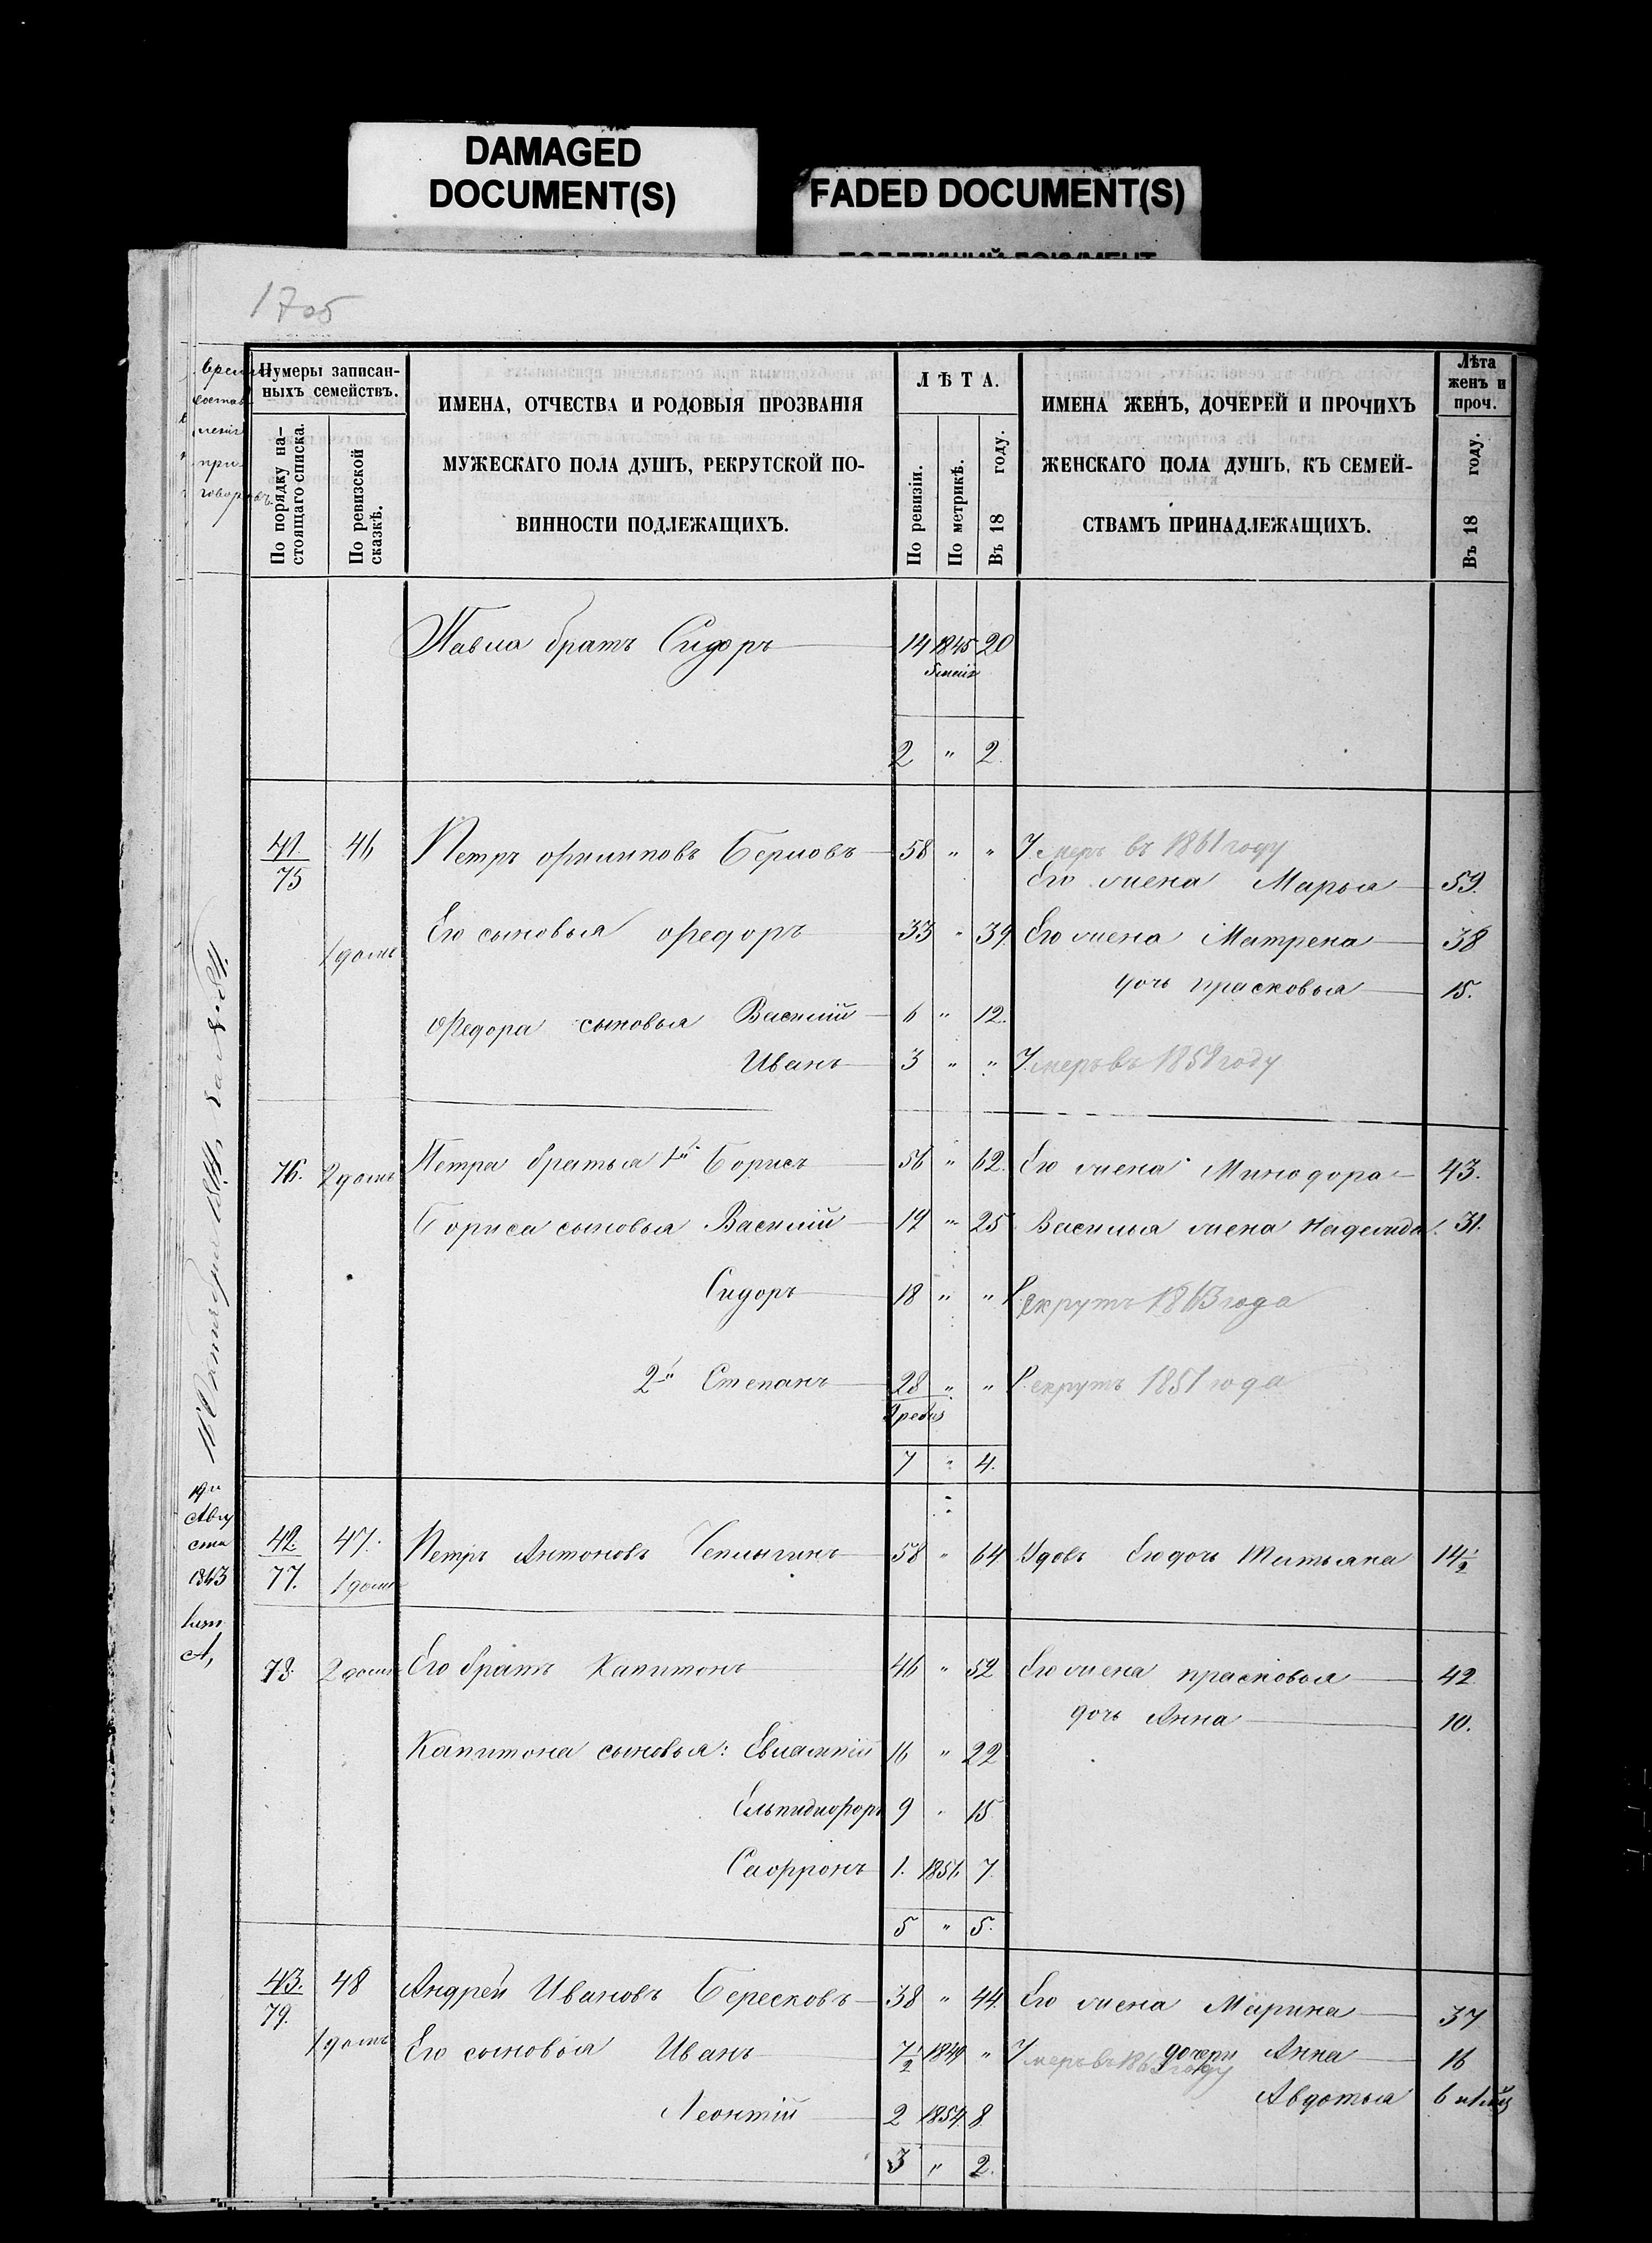 DAMAGED
DOCUMENT(S)
FADED DOCUMENT(S)
17об
Нумеры записан-
ныхъ семействъ.
По порядку на-
стоящаго списка.
По ревизской
сказкѣ.
ИМЕНА, ОТЧЕСТВА И РОДОВЫЯ ПРОЗВАНІЯ
МУЖЕСКАГО ПОЛА ДУШЪ, РЕКРУТСКОЙ ПО-
ВИННОСТИ ПОДЛЕЖАЩИХЪ.
ЛѢТА.
По ревизіи.
По метрикѣ.
Въ 18 году.
ИМЕНА ЖЕНЪ, ДОЧЕРЕЙ И ПРОЧИХЪ
ЖЕНСКАГО ПОЛА ДУШЪ, КЪ СЕМЕЙ-
СТВАМЪ ПРИНАДЛЕЖАЩИХЪ.
Лѣта
женъ и
проч.
Въ 18 году.
Павла братъ Сидоръ 14 1845 20
2 " 2.
41 46 Петръ Филиповъ 58 " " Умеръ въ 1861 году
75 Его жена Марья 59.
1 домъ Его сыновья Федоръ 33 " 39 Его жена Матрена 38
дочь Прасковья 15.
Федора сыновья Василій 6 " 12.
Иванъ 3 " " Умеръ въ 1858 году
76. 2 домъ Петра братья 1й Борисъ 56 " 62. Его жена Минодора 43.
Бориса сыновья Василій 19 " 25 Василья жена Надежда 31.
Сидоръ 18 " " Рекрутъ 1863 года
2й Степанъ 28 " " Рекрутъ 1857 года
7 " 4.
19го
Авгу
ста
1863
42. 47. Петръ Антоновъ 58 " 64 Удовъ Его дочь Татьяна 14½
77. 1 домъ
78. 2 домъ Его братъ Капитонъ 46 " 52 Его жена Прасковья 42
дочь Анна 10.
Капитона сыновья: Евлампій 16 " 22
Елпидифоръ 9 " 15
Сафронъ 1. 1856 7.
5 " 5.
43. 48 Андрей Ивановъ Бересковъ 38 " 44 Его жена Марина 37
79.
1 домъ Его сыновья Иванъ 7½ 1849 " Умеръ въ году дочери Анна 16
Леонтій 2 1854 8 Авдотья 6
3 " 2.